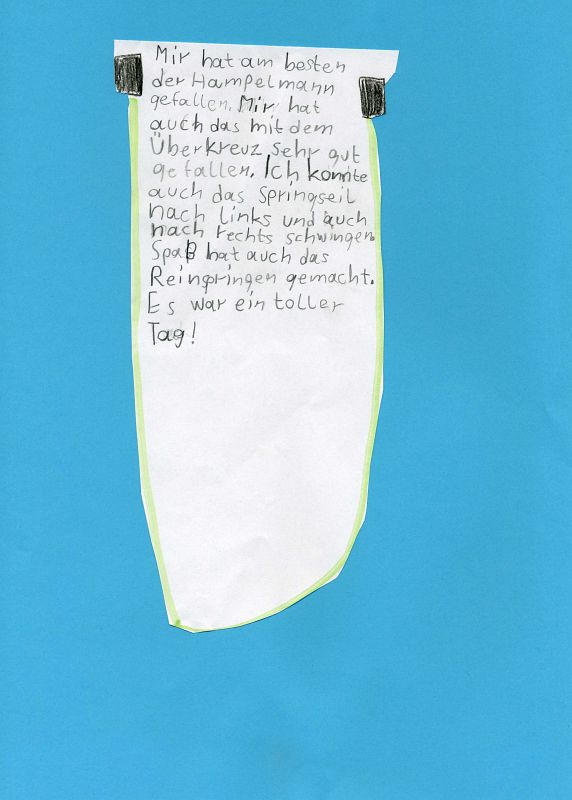 Mir hat am besten
der Hampelmann
gefallen. Mir hat
auch das mit dem
Überkreuz sehr gut
gefallen. Ich konnte
auch das Springseil
nach links und auch
nach rechts schwingen.
Spaß hat auch das
Reinpringen gemacht.
Es war ein toller
Tag!